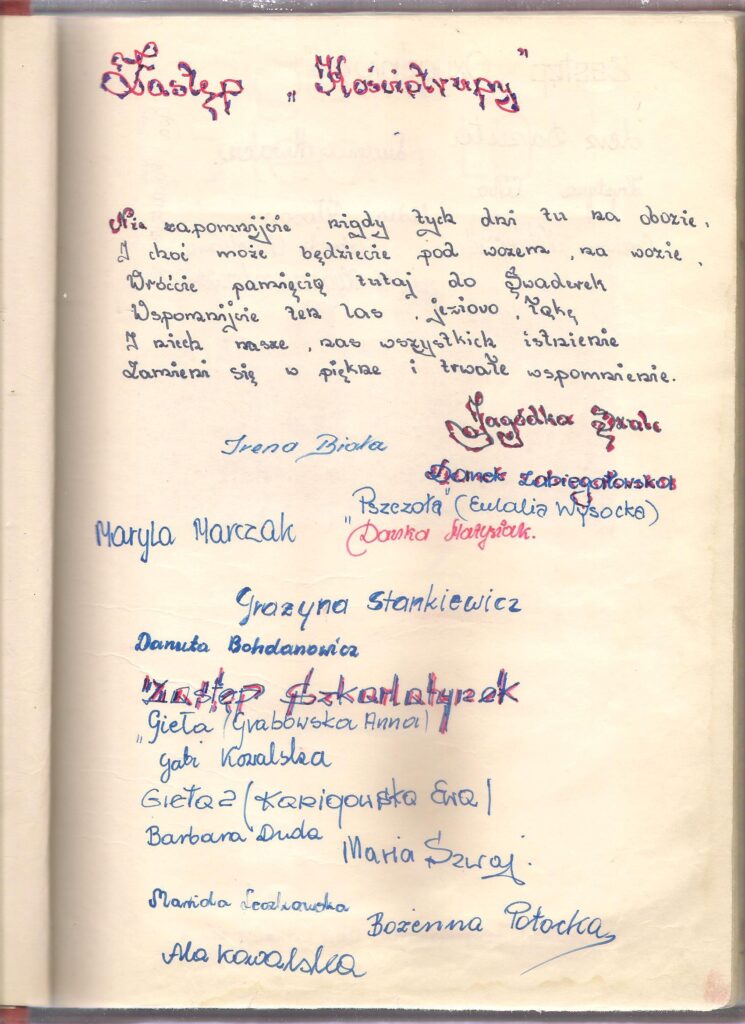 Zastęp „Kościotrupy"
Nie zapomnijcie nigdy tych dni tu na obozie,
I choć może będziecie pod wozem, na wozie,
Wróćcie pamięcią tutaj do Swaderek
Wspomnijcie ten las, jezioro, łąkę
I niech nasze, nas wszystkich istnienie
Zamieni się w piękne i trwałe wspomnienie.
Jagódka
Irena Biała
Danek
„Pszczoła" (Eulalia Wysocka)
Maryla Marczak
Danka Matysiak.
Grażyna Stankiewicz
Danuta Bohdanowicz
"Zastęp Szkarlatynek
„Gieta (Grabowska Anna)
Gabi Kowalska
Gieta 2 ( Ewa)
Barbara Duda
Maria Szwaj.
Bożenna Potocka
Ala Kowalska